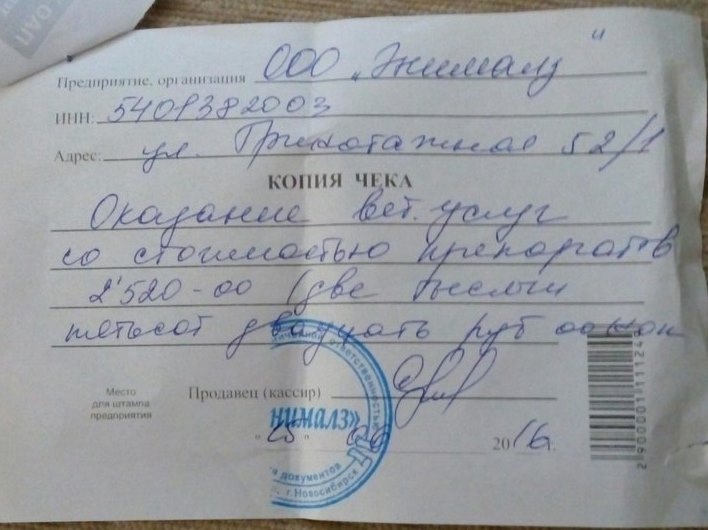 Предприятие, организация ООО „Энималз"
ИНН: 5401382003
Адрес: ул. Трикотажная 52/1
КОПИЯ ЧЕКА
Оказание вет. услуг
со стоимостью препаратов
2'520-00 (две тысячи
пятьсот двадцать руб 00 коп
Место
для штампа
предприятия
Продавец (кассир)
ответственностью
нималз»
"25" 06 2016г.
документов
г. Новосибирск